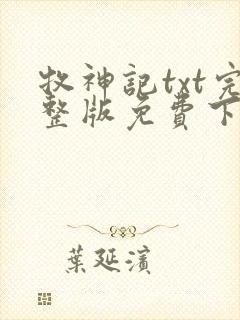 牧神記txt完
整版免費下
葉延濱